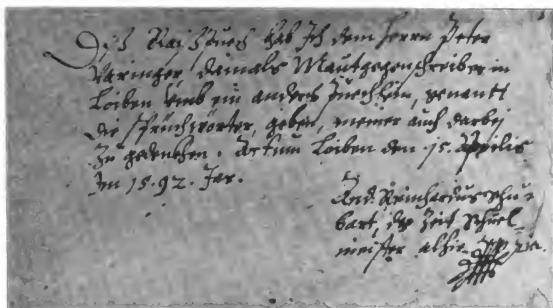 Diß Raisbuech hab Ich dem Herrn Peter
Väringer, damals Mautgegenschreiber in
Loiben umb ein anders Puechlein, genantt
die sprüchwörter, geben, meiner auch darbej
zu gedenckhen. Actum Loiben den 15. Apprilis
Im 1592. Jar.
And: Reinhardus Schue
bart, der Zeit Schuel
meister alhie.